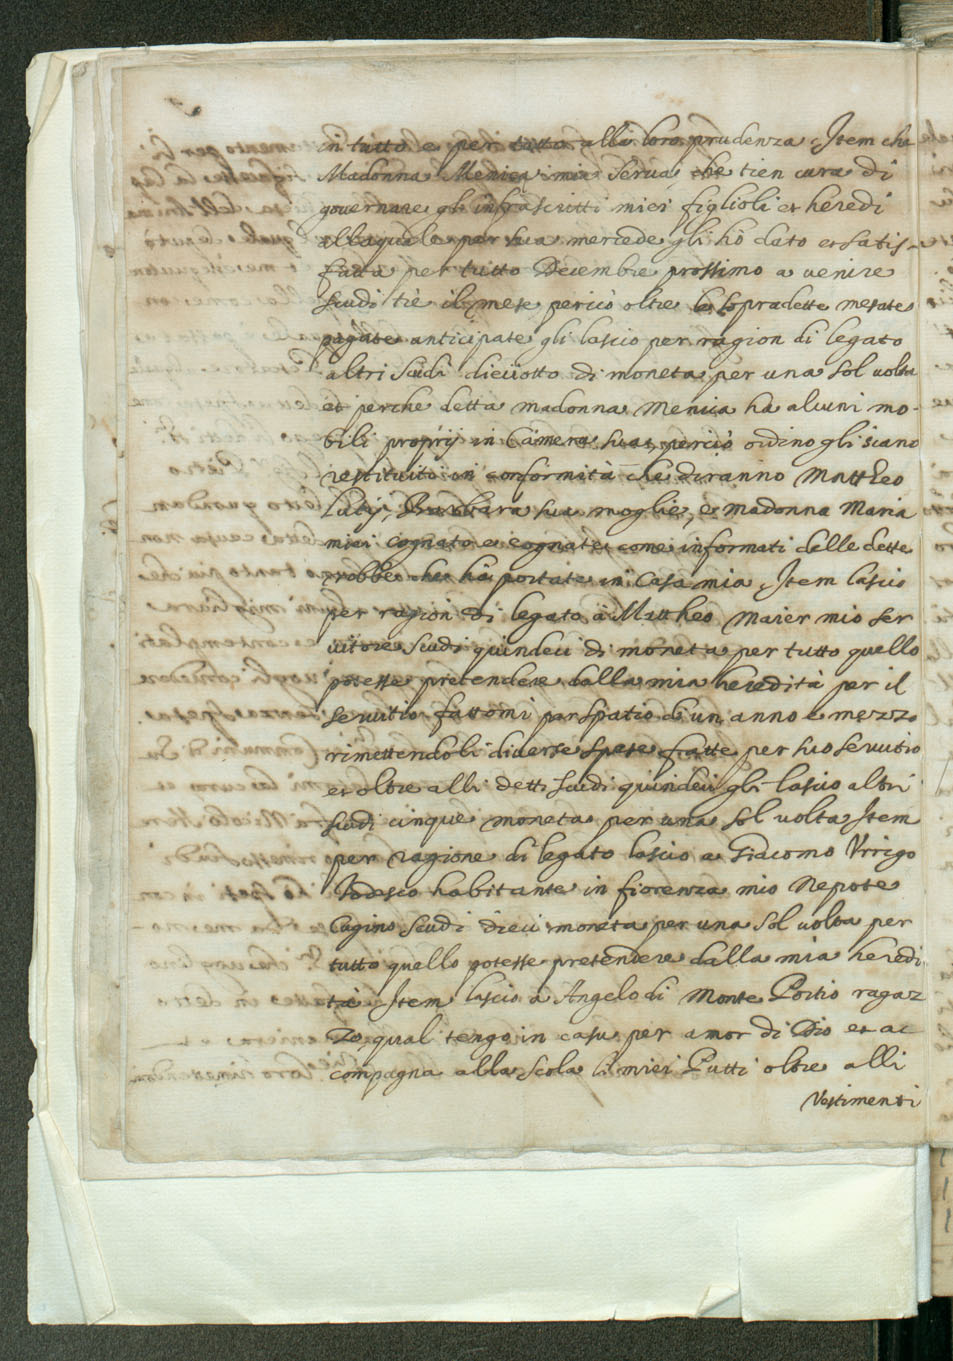 in tutto e per tutto alla loro prudenza. Item che
Madonna Menica mia Serua, che tien cura di
gouernare gli infrascritti miei figlioli et heredi
allaquale per sua mercede gli hò dato et satis-
fatta per tutto Decembre prossimo a venire
scudi trè il mese perciò oltre le sopradette mesate
pagate anticipate gli lascio per ragion di legato
altri scudi dieciotto di moneta per una sol uolta
et perche detta madonna Menica ha alcuni mo-
bili proprij in Camera sua, perciò ordino gli siano
restituiti in conformità che diranno Mattheo
Lutij, Barbara sua moglie, e madonna Maria
miei cognato e cognate come informati delle dette
robbe che hà portate in Casa mia. Item lascio
per ragion di legato à Mattheo Maier mio ser
uitore scudi quindeci di moneta per tutto quello
potesse pretendere dalla mia heredità per il
seruitio fattomi per spatio di un anno e mezzo
rimettendoli diuerse spese fatte per suo seruitio
et oltre alli detti scudi quindeci gli lascio altri
scudi cinque moneta per una sol uolta Item
per ragione di legato lascio a Giacomo Vrrigo
Todesco habitante in fiorenza mio Nepote
Cugino scudi dieci moneta per una sol uolta per
tutto quello potesse pretendere dalla mia heredi
tà Item lascio à Angelo di Monte Portio ragaz
zo, qual tengo in casa per amor di Dio et ac
compagna alla scola li miei Putti oltre alli
Vestimenti